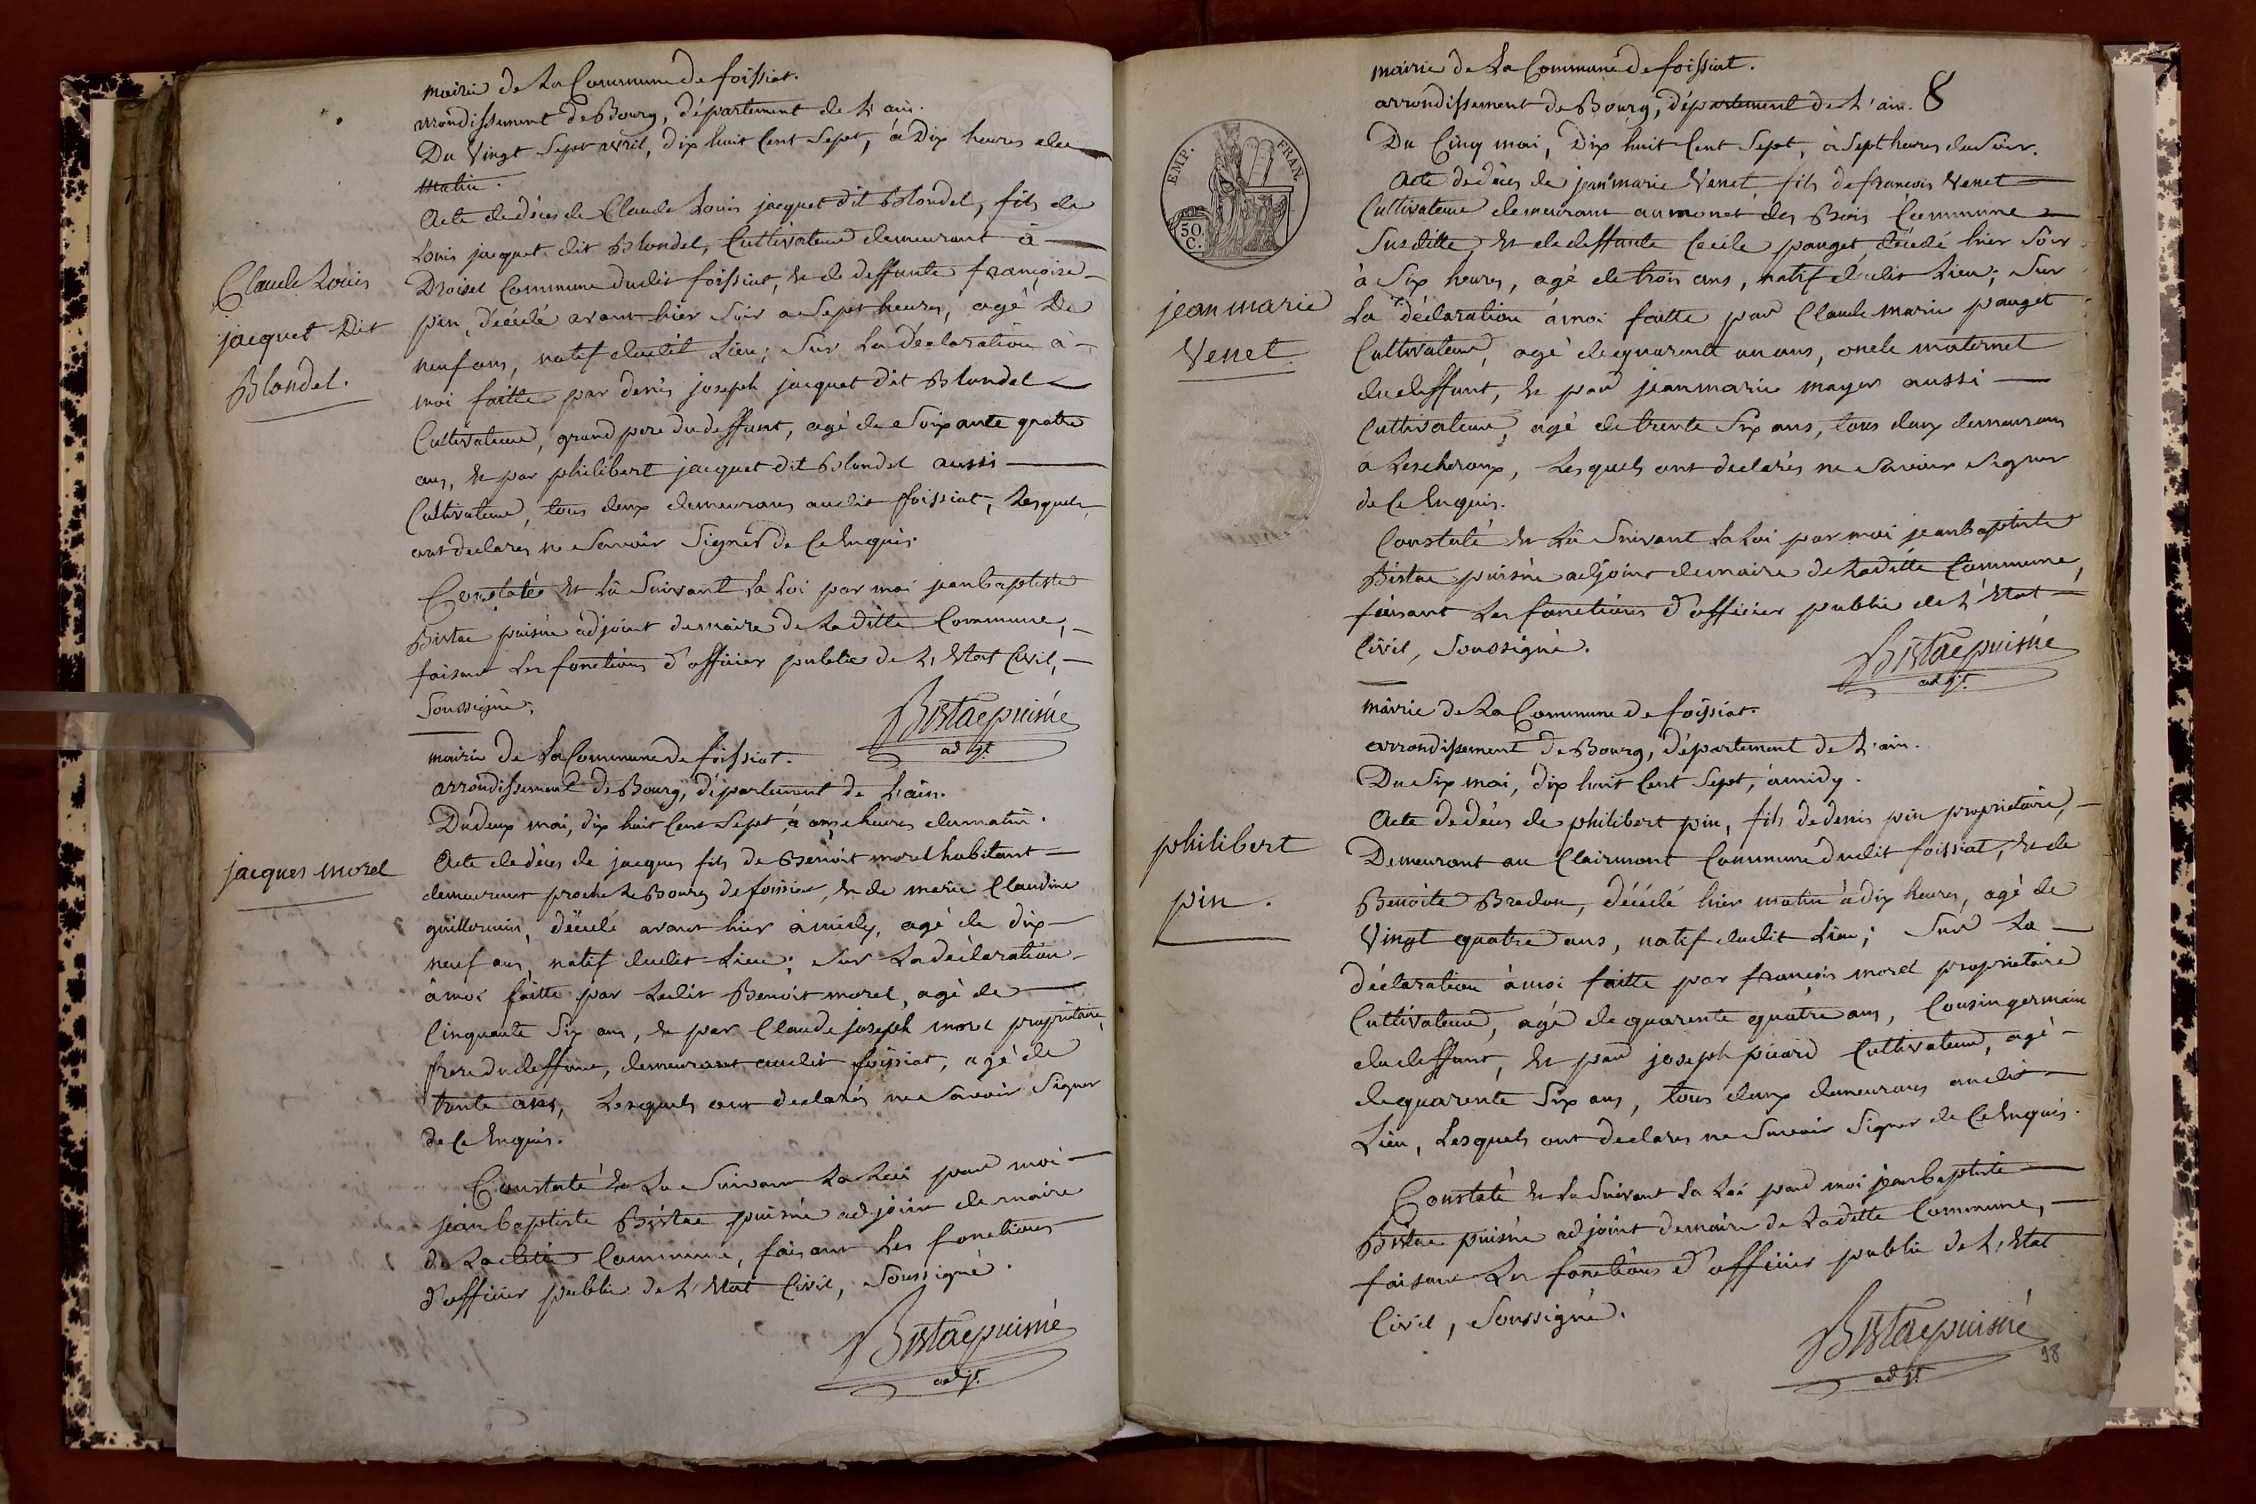 mairie de La Commune de foissiat.
arrondissement de Bourg, département de L'ain.
Du Vingt Sept avril, dix huit Cent Sept, à Dix heures du
matin.
Acte de décès de Claude Louis jacquet dit Blondel, fils de
Louis jacquet dit Blondel, Cultivateur demeurant à
Droiset Commune dudit foissiat, et de deffunte françoise
pin, décédé avant hier Soir a Sept heures, agé De
neuf ans, natif dudit Lieu; Sur La déclaration à
moi faitte par denis joseph jacquet dit Blondel
Cultivateur, grand pere du deffunt, agé de Soixante quatre
ans, et par philibert jacquet dit Blondel aussi
Cultivateur, tous deux demeurans audit foissiat, Lesquels
ont declarés ne Savoir Signer de Ce Enquis.
Constaté et Lû Suivant La Loi par moi jean baptiste
Bistac puisné adjoint de maire de Laditte Commune,
faisant Les fonctions d'officier public de L'Etat Civil,
Soussigné.
Bistac puisné
adjt.
Claude Louis
jacquet Dit
Blondel.
mairie de La Commune de foissiat.
arrondissement de Bourg, département de L'ain.
Du deux mai, dix huit Cent Sept, à onze heures du matin.
Acte de décès de jacques fils de Benoit morel habitant
demeurant proche Le Bourg de foissiat, et de marie Claudine
guillermin, décédé avant hier à midy, agé de dix
neuf ans, natif dudit Lieu; Sur La déclaration
à moi faitte par Ledit Benoit morel, agé de
Cinquante Six ans, et par Claude joseph morel propriétaire,
frere du deffunt, demeurant audit foissiat, agé de
trente ans, Lesquels ont declarés ne Savoir Signer
de Ce Enquis.
Constaté et Lu Suivant La Loi par moi
jean baptiste Bistac puisné adjoint de maire
de Laditte Commune, faisant Les fonctions
d'officier public de L'Etat Civil, Soussigné.
Bistac puisné
adjt.
jacques morel
mairie de La Commune de foissiat.
arrondissement de Bourg, département de L'ain. 8
Du Cinq mai, Dix huit Cent Sept, à Sept heures du Soir.
Acte de décès de jean marie Venet fils de francois Venet
Cultivateur demeurant au monet des Bois Commune
Susditte, et de deffunte Cecile pauget, décédé hier Soir
à Six heures, agé de trois ans, natif dudit Lieu; Sur
La déclaration à moi faitte par Claude marie pauget
Cultivateur, agé de quarente un ans, oncle maternel
du deffunt, et par jean marie mayer aussi
Cultivateur, agé de trente Six ans, tous deux demeurans
a Lescheroux, Lesquels ont declarés ne Savoir Signer
de Ce Enquis.
Constaté et Lû Suivant La Loi par moi jean baptiste
Bistac puisné adjoint de maire de Laditte Commune,
faisant Les fonctions d'officier public de L'Etat
Civil, Soussigné.
Bistac puisné
adjt.
EMP. FRAN.
50
C.
jean marie
Venet
mairie de La Commune de foissiat.
arrondissement de Bourg, département de L'ain.
Du Six mai, dix huit Cent Sept, à midy.
Acte de décès de philibert pin, fils de denis pin propriétaire,
Demeurant au Clairmont Commune dudit foissiat, et de
Benoite Bredon, décédé hier matin à dix heures, agé de
Vingt quatre ans, natif dudit Lieu; Sur La
déclaration à moi faitte par françois morel propriétaire
Cultivateur, agé de quarente quatre ans, Cousin germain
du deffunt, et par joseph picard Cultivateur, agé
de quarente Six ans, tous deux demeurans audit
Lieu, Lesquels ont declarés ne Savoir Signer de Ce Enquis.
Constaté et Lu Suivant La Loi par moi jean baptiste
Bistac puisné adjoint de maire de Laditte Commune,
faisant Les fonctions d'officier public de L'Etat
Civil, Soussigné.
Bistac puisné
adjt.
98
philibert
pin.